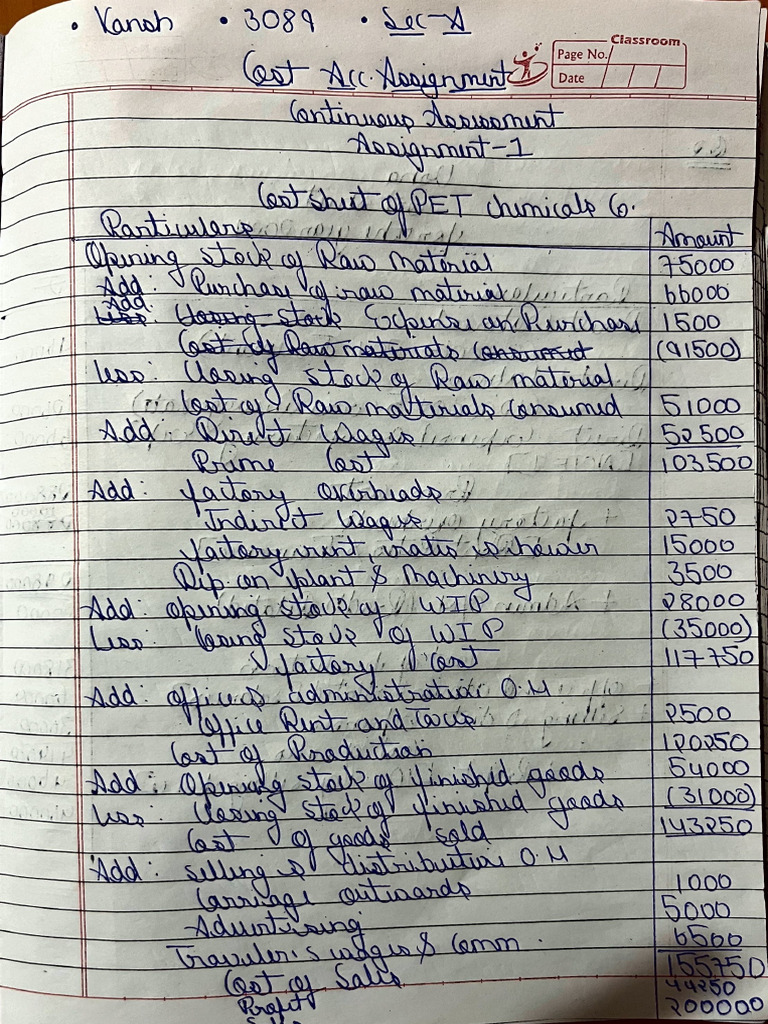 • Vansh • 3089 • Sec-A
Classroom
Page No.
Date
Cost Acc. Assignment
Continuous Assessment
Assignment-1
Cost sheet of PET chemicals Co.
Particulars Amount
Opening stock of Raw material 75000
Add: Purchase of raw material 66000
Add: Less: Closing stock Expense on Purchase 1500
Cost of Raw materials consumed (91500)
Less: Closing stock of Raw material
Cost of Raw materials consumed 51000
Add Direct Wages 52500
Prime Cost 103500
Add: factory overheads
Indirect Wages 2750
factory rent, rates & power 15000
Dep. on plant & Machinery 3500
Add: opening stock of WIP 28000
Less: Closing stock of WIP (35000)
factory cost 117750
Add: office & administration O.H
Office Rent and Taxes 2500
Cost of Production 120250
Add: Opening stock of finished goods 54000
Less: Closing stock of finished goods (31000)
Cost of goods sold 143250
Add: selling & distribution O.H
Carriage outwards 1000
Advertising 5000
Traveler's wages & Comm. 6500
Cost of Sales 155750
Profit 44250
Sales 200000